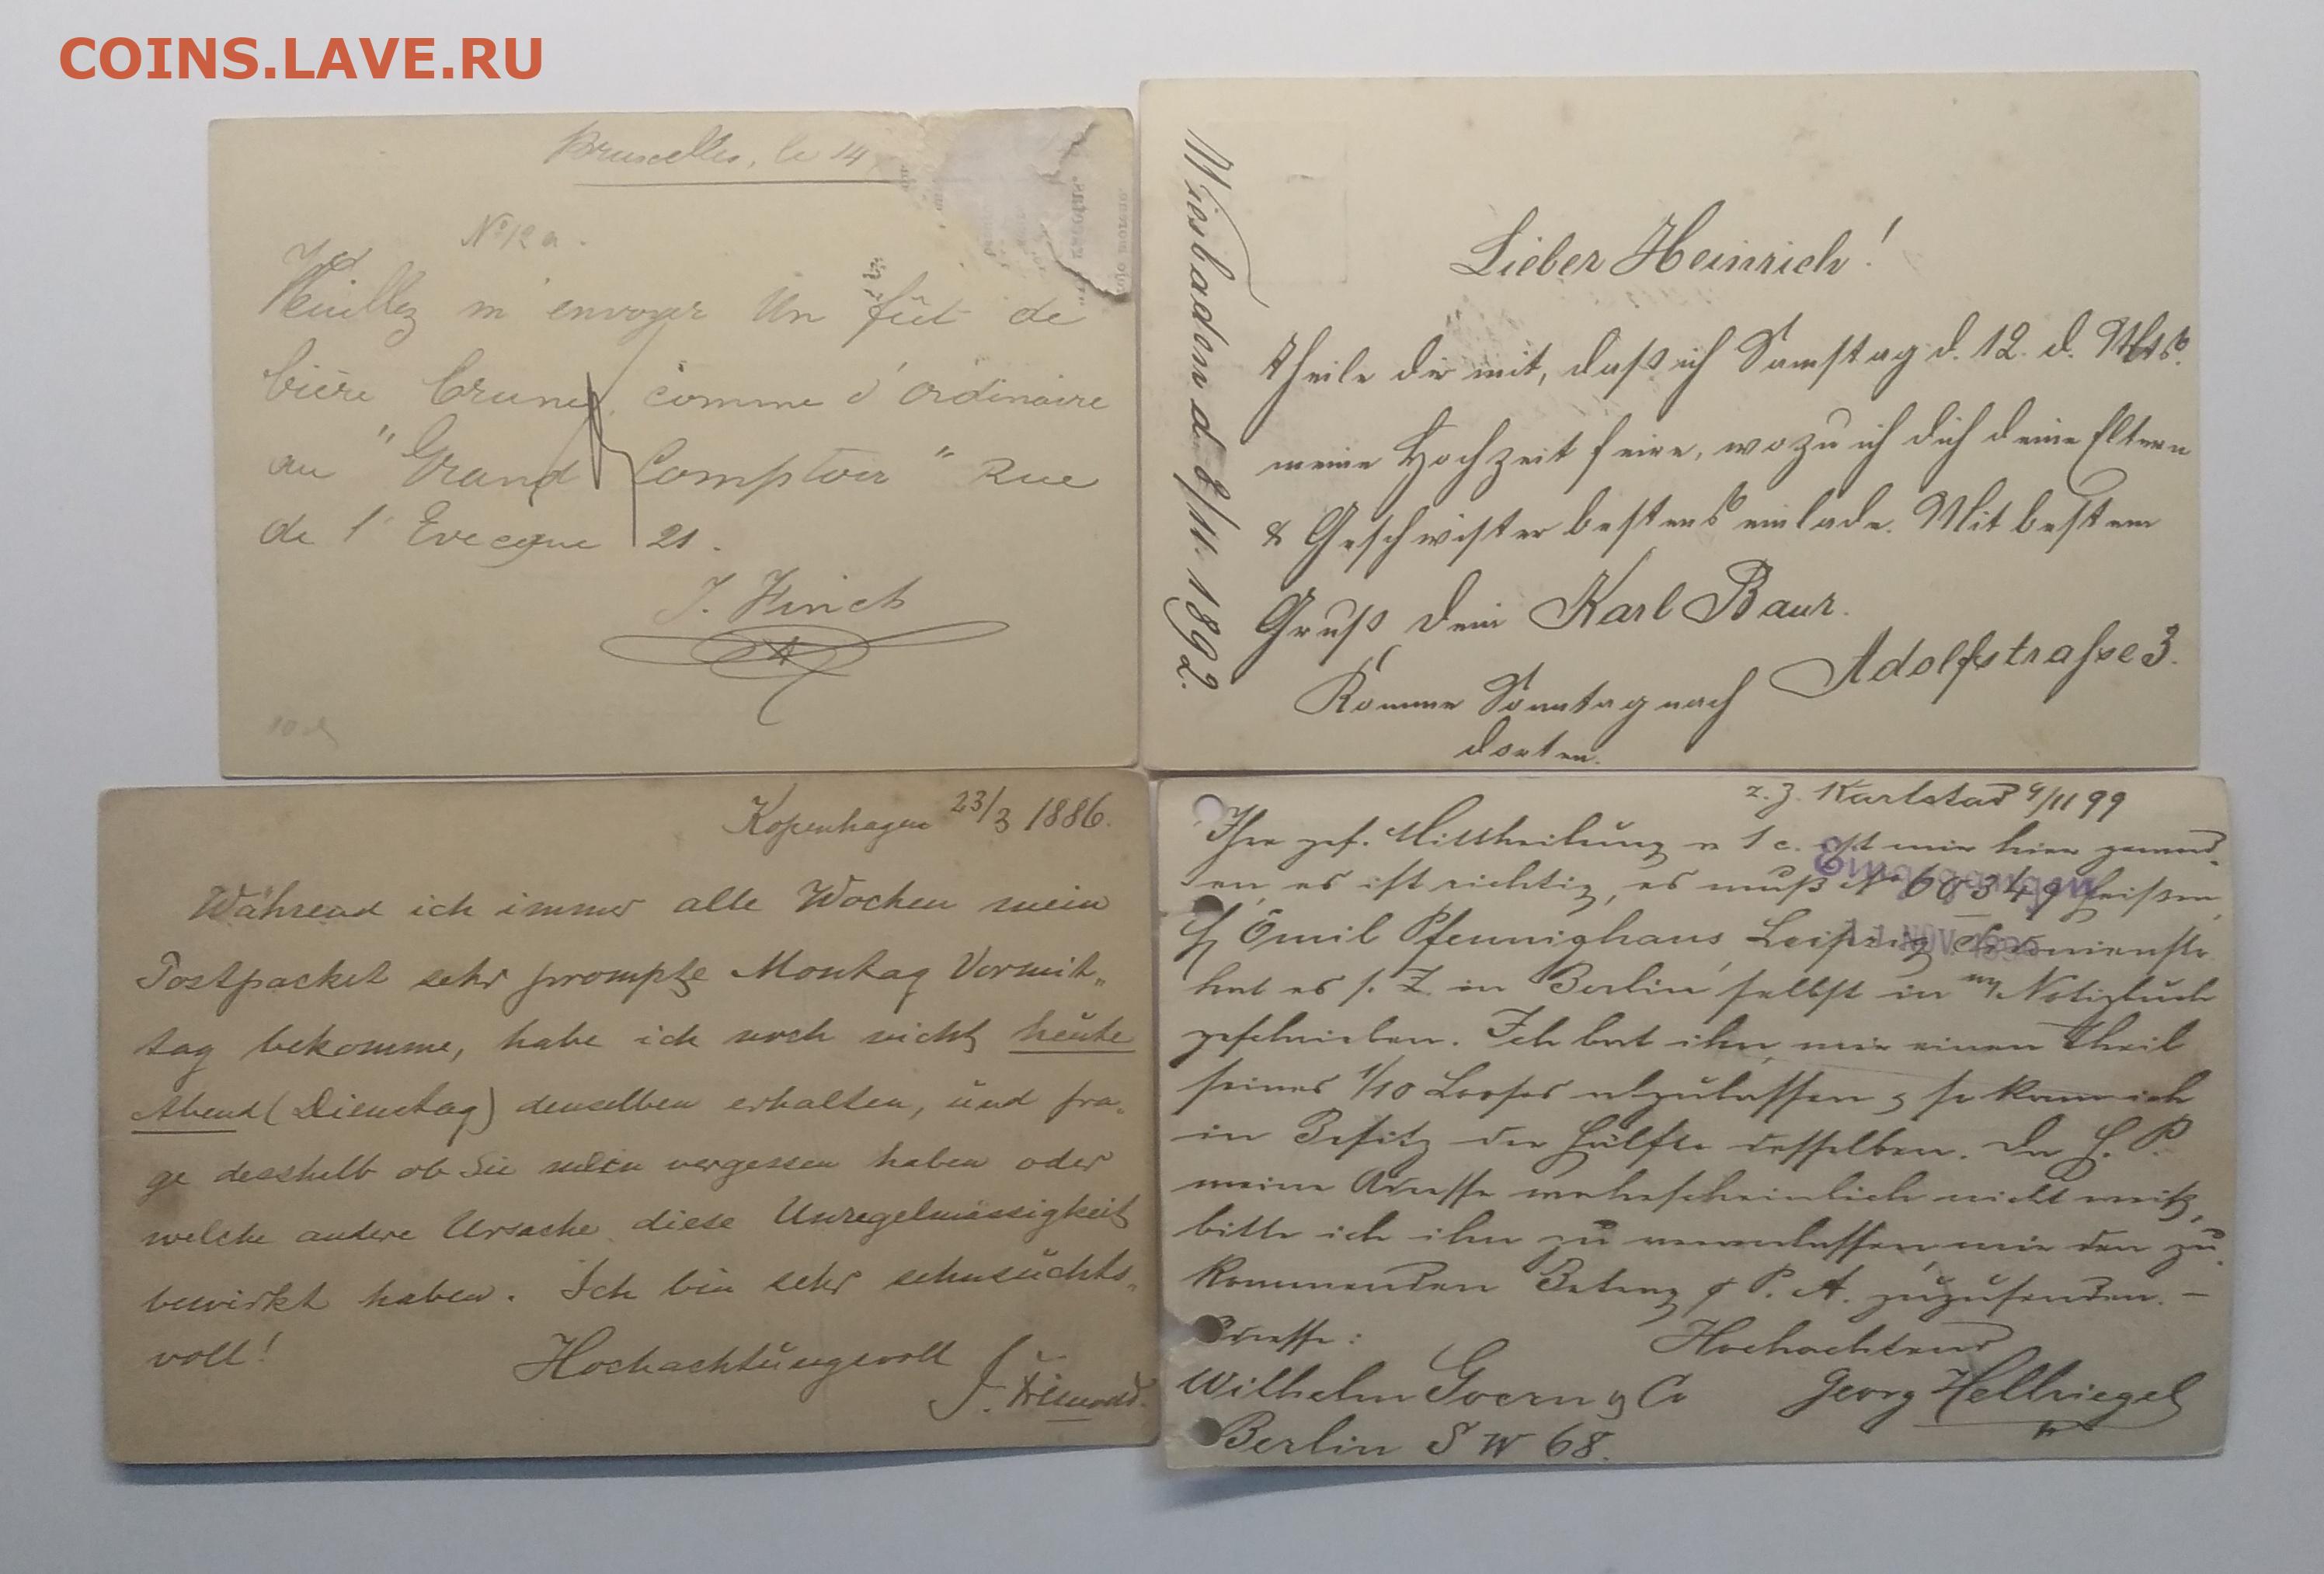 COINS.LAVE.RU
Bruxelles, le 14
No 12 a.
Veuillez m'envoyer un fût de
bière brune, comme d'ordinaire
au "Grand Comptoir" Rue
de l'Evecque 21.
Wiesbaden d. 8/11. 1892.
Lieber Heinrich!
Theile dir mit, daß ich Samstag d. 12. d. Mts.
meine Hochzeit feire, wozu ich dich deine Eltern
& Geschwister bestens einlade. Mit bestem
Gruß dein Karl Baur.
Adolfstrasse 3.
Komme Sonntag nach
dorten.
Kopenhagen 23/3 1886.
Während ich immer alle Wochen mein
Postpacket sehr prompte Montag Vormit„
tag bekomme, habe ich noch nicht heute
Abend (Dienstag) denselben erhalten, und fra„
ge desshalb ob Sie mein vergessen haben oder
welche andere Ursache diese Unregelmässigkeit
bewirkt haben. Ich bin sehr sehnsuchts„
voll!
Hochachtungsvoll
z. Z. Karlstad 9/11 99
Ihre gef. Mittheilung v 1 c. ist mir hier
en, es ist richtig, es muß No 60349 heissen,
Eingegangen
NOV. 1899
H Emil Pfennighaus, Leipzig
hat es s. Z. in Berlin selbst in m/ Notizbuch
geschrieben. Ich bat ihn, mir einen Theil
seines 1/10 Looses abzulassen & so kam ich
in Besitz der Hälfte desselben. Da H. P.
meine Adresse wahrscheinlich nicht weiß,
bitte ich ihn zu veranlassen, mir den zu
kommenden Betrag p P. A. zuzusenden. —
Adresse:
Hochachtend
Wilhelm Goern & Co
Georg Hellriegel
Berlin S W 68.